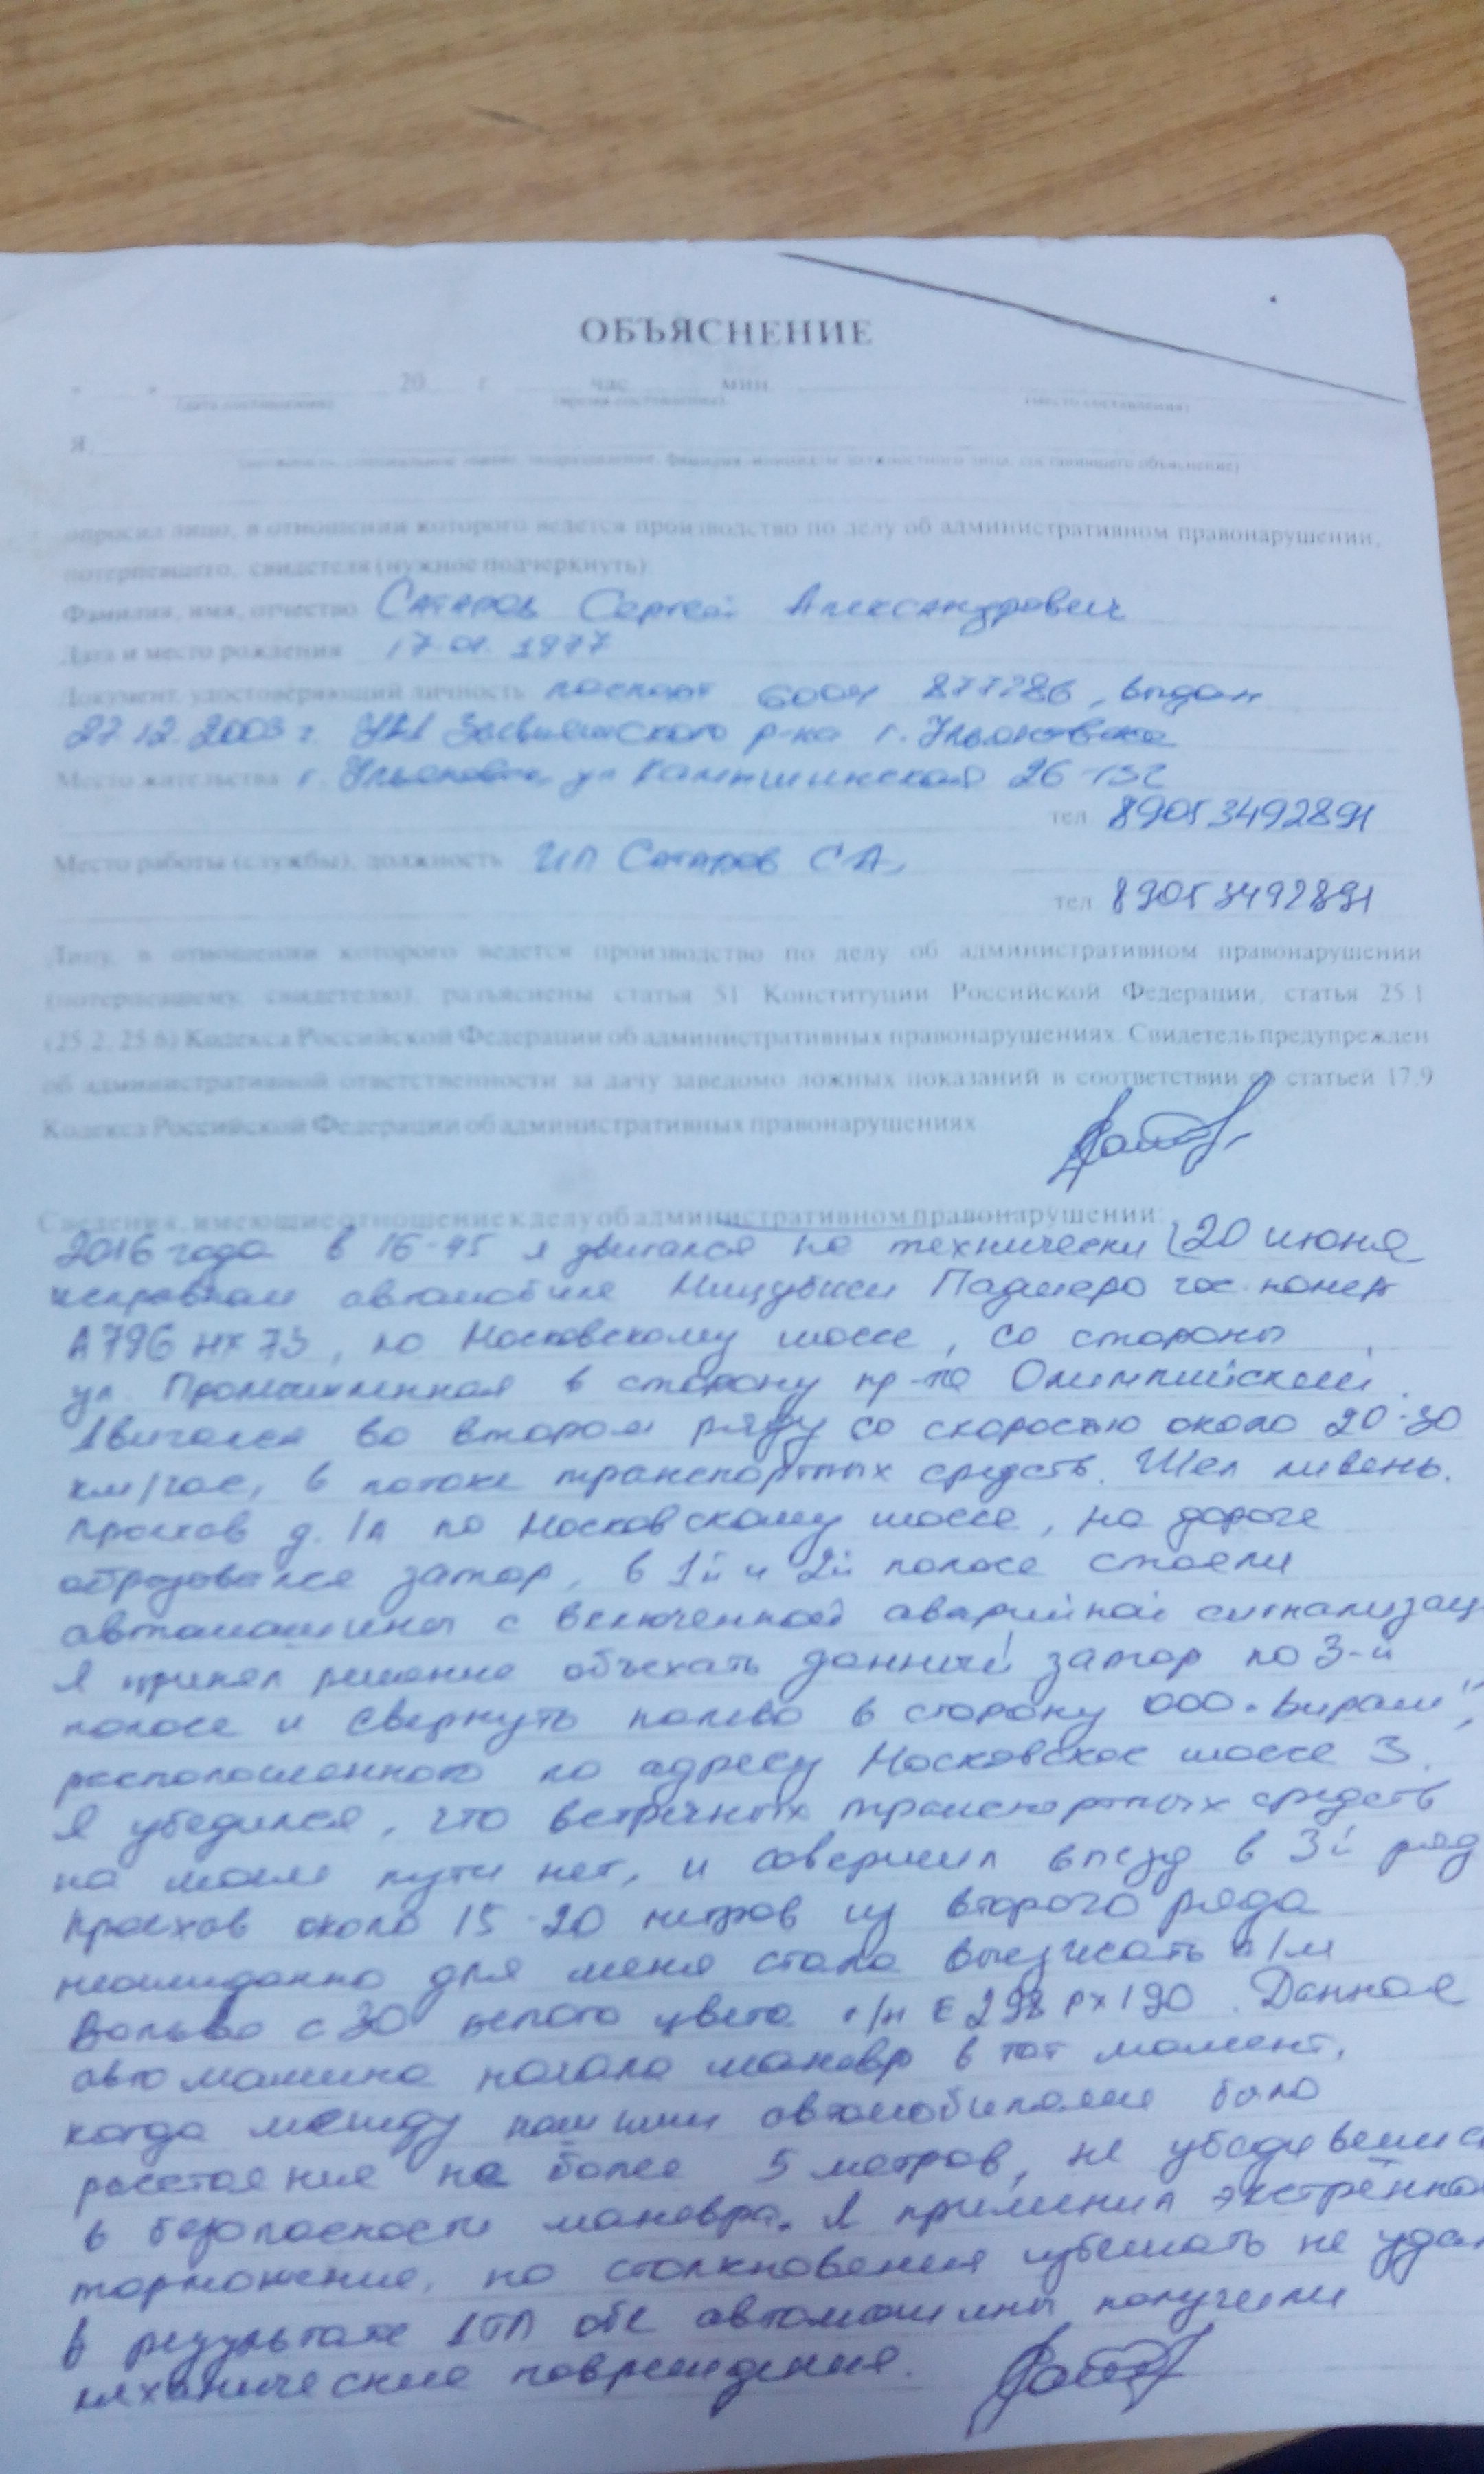 ОБЪЯСНЕНИЕ
20 г. час. мин.
(дата составления) (время составления) (место составления)
Я,
опросил лицо, в отношении которого ведется производство по делу об административном правонарушении,
потерпевшего, свидетеля (нужное подчеркнуть)
Фамилия, имя, отчество Сатаров Сергей Александрович
Дата и место рождения 1977
Документ, удостоверяющий личность паспорт 6004 877286, выдан
27.12.2003 г. Засвияжского р-на г. Ульяновска
Место жительства г. Ульяновск ул 26-132
тел 89053492891
Место работы (службы), должность ИП Сатаров С А,
тел 89053492891
Лицу, в отношении которого ведется производство по делу об административном правонарушении
(потерпевшему, свидетелю), разъяснены статья 51 Конституции Российской Федерации, статья 25.1
(25.2, 25.6) Кодекса Российской Федерации об административных правонарушениях. Свидетель предупрежден
об административной ответственности за дачу заведомо ложных показаний в соответствии со статьей 17.9
Кодекса Российской Федерации об административных правонарушениях
Сведения, имеющие отношение к делу об административном правонарушении:
2016 года в 16-45 я двигался на технически 20 июня
исправном автомобиле Мицубиси Паджеро гос. номер
А796 НХ 73, по Московскому шоссе, со стороны
ул. Промышленная в сторону пр-та Олимпийский.
Двигался во втором ряду со скоростью около 20-30
км/час, в потоке транспортных средств. Шел ливень.
Проехав д. 1А по Московскому шоссе, на дороге
образовался затор, в 1й и 2й полосе стояли
автомашины с включенной аварийной сигнализац
Я принял решение объехать данный затор по 3-й
полосе и свернуть налево в сторону ООО
расположенного по адресу Московское шоссе 3.
Я убедился, что встречных транспортных средств
на моем пути нет, и совершил выезд в 3й ряд
Проехав около 15-20 метров из второго ряда
неожиданно для меня стала выезжать а/м
Вольво с30 белого цвета г/н Е298РХ190. Данная
автомашина начала маневр в тот момент,
когда между нашими автомобилями было
расстояние не более 5 метров, не убедившись
в безопасности маневра. Я применил экстренное
торможение, но столкновения избежать не удал
В результате ДТП обе автомашины получили
механические повреждения.